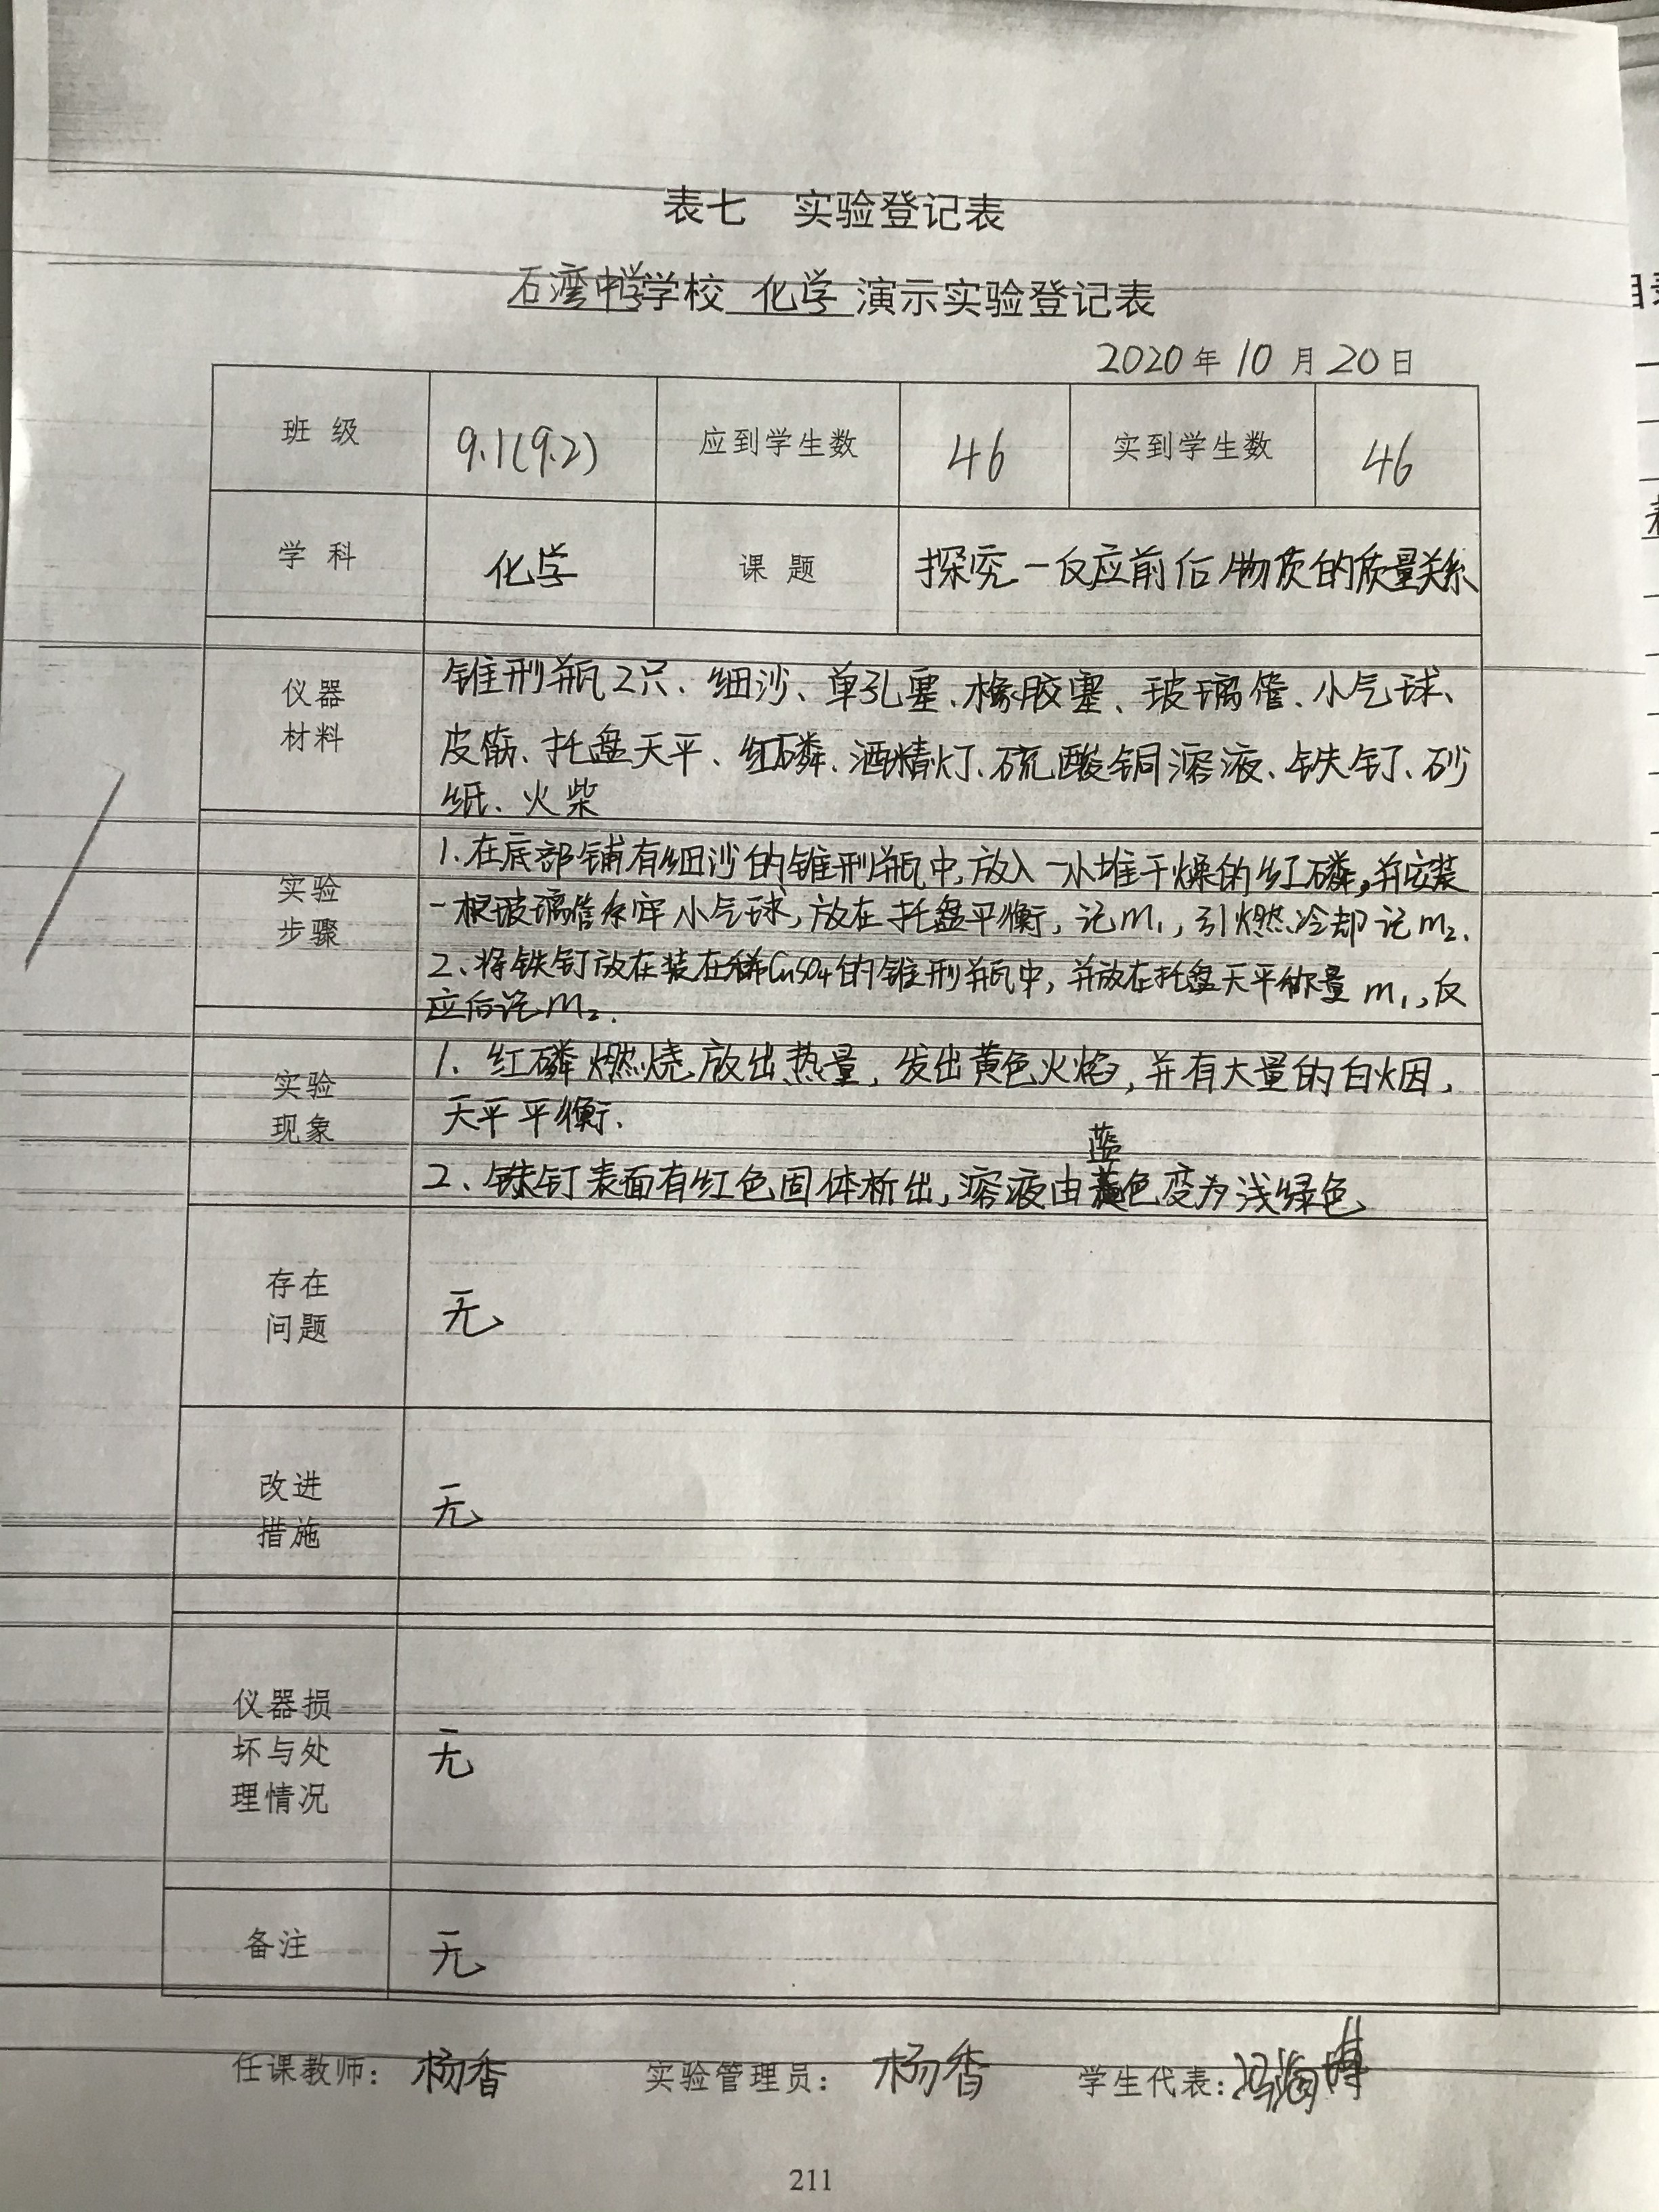 表七 实验登记表
石湾中学学校 化学 演示实验登记表
2020年10月20日
班级 9.1(9.2) 应到学生数 46 实到学生数 46
学科 化学 课题 探究一反应前后物质的质量关系
仪器
材料
锥形瓶2只、细沙、单孔塞、橡胶塞、玻璃管、小气球、
皮筋、托盘天平、红磷、酒精灯、硫酸铜溶液、铁钉、砂
纸、火柴
实验
步骤
1.在底部铺有细沙的锥形瓶中,放入一小堆干燥的红磷,并安装
一根玻璃管系牢小气球,放在托盘平衡,记m₁,引燃、冷却记m₂.
2、将铁钉放在装在稀CuSO4的锥形瓶中,并放在托盘天平称量m₁,反
应后记m₂.
实验
现象
1.红磷燃烧放出热量,发出黄色火焰,并有大量的白烟,
天平平衡.
蓝
2、铁钉表面有红色固体析出,溶液由色变为浅绿色
存在
问题
无
改进
措施
无
仪器损
坏与处
理情况
无
备注 无
任课教师:杨香 实验管理员:杨香 学生代表:
211